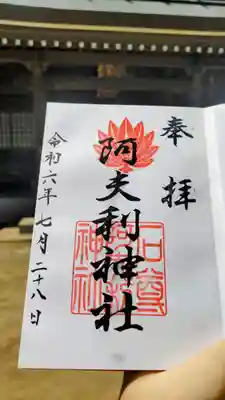 奉拝
阿夫利神社
令和六年七月二十八日